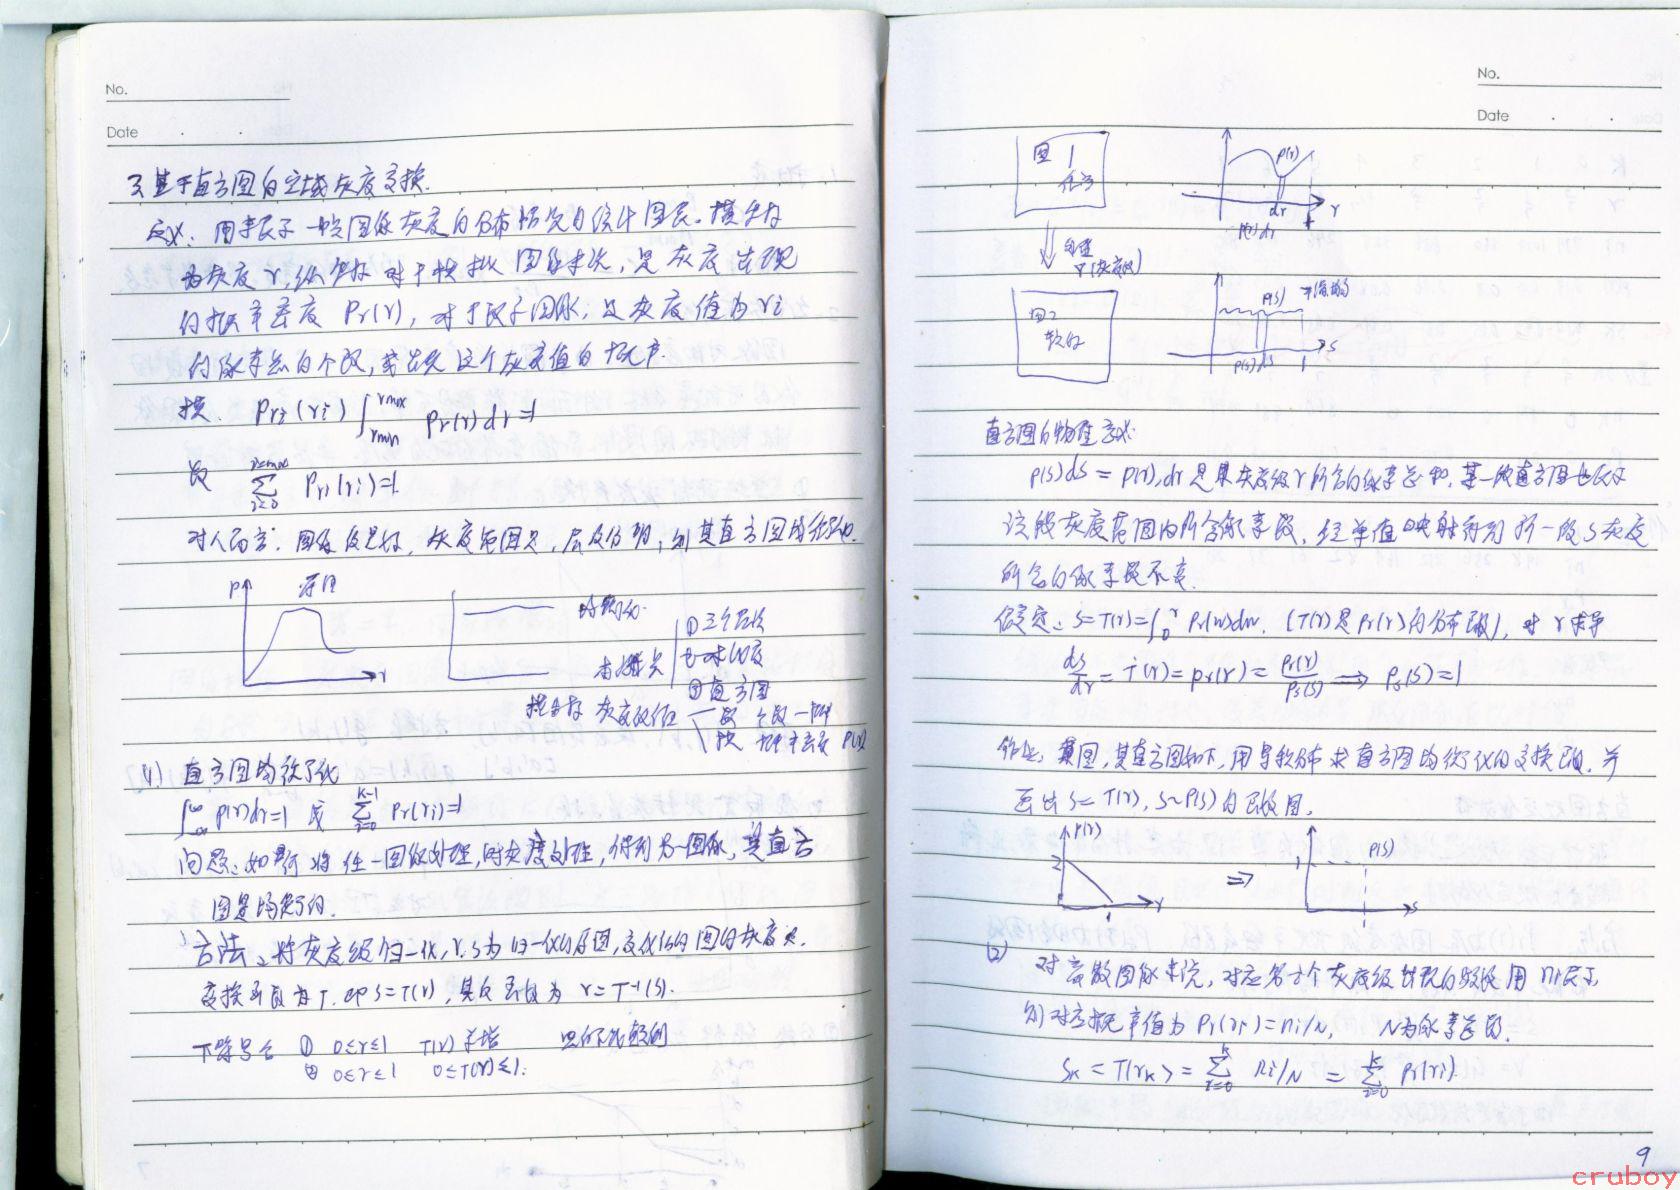 No.
Date
3. 基于直方图的空域灰度变换.
定义: 用来表示一帧图像灰度的分布情况的统计图表. 横坐标
为灰度 r, 纵坐标 对于模拟图像来说, 是灰度出现
的概率密度 Pr(r), 对于数字图像, 是灰度值为 ri
的像素点的个数, 或出现这个灰度值的概率
模. Pri(ri) ∫rmin rmax Pr(r)dr=1
数 ∑ i=0 Pri(ri)=1
对人而言: 图像 灰度范围大, 层次 明, 则其直方图
P
r
①三个
②直方图
横坐标 灰度数值 数 个数
模 概率密度 P(r)
(1). 直方图均衡化
∫ p(r)dr=1 或 ∑ i=0 K-1 Pr(ri)=1
问题: 如何将任一图像处理, 灰度处理, 得到另一图像, 其直方
图是均衡的.
方法: 将灰度级归一化, r.s为归一化的原图, 变化后的图的灰度.
变换函数为 T. 即 S=T(r), 其反函数为 r=T⁻¹(s).
下符号合 ① 0≤r≤1 T(r)单增
② 0≤r≤1 0≤T(r)≤1.
No.
Date
图1
任意
p(r)
dr
r
1
P(r)dr
处理
T(灰度级)
图2
P(s)
P(s)ds
1
s
直方图的物理意义:
p(s)ds = p(r).dr 是某灰度级 r 所含的像素总和, 某一段直方图也表示
该段灰度范围内所含像素数, 经单值映射得到另一段 S 灰度
所含的像素数不变.
假定: S=T(r)=∫0 r Pr(w)dw. (T(r)是Pr(r)的分布函数), 对 r 求导
ds/dr = T(r) = pr(r) = Pr(r)/Ps(s) ⟹ Ps(s)=1
作业: 某图, 其直方图如下, 用 求直方图均衡化的变换函数. 并
画出 S=T(r), S~P(s) 的函数图.
P(r)
2
1
r
⇒
1
P(s)
s
(2) 对离散图像来说, 对应第i个灰度级出现的频数用 ni 表示
则对应概率值为 Pr(ri)=ni/N, N为像素总数.
Sk = T(rk) = ∑ i=0 k ni/N = ∑ i=0 k Pr(ri)
9
cruboy